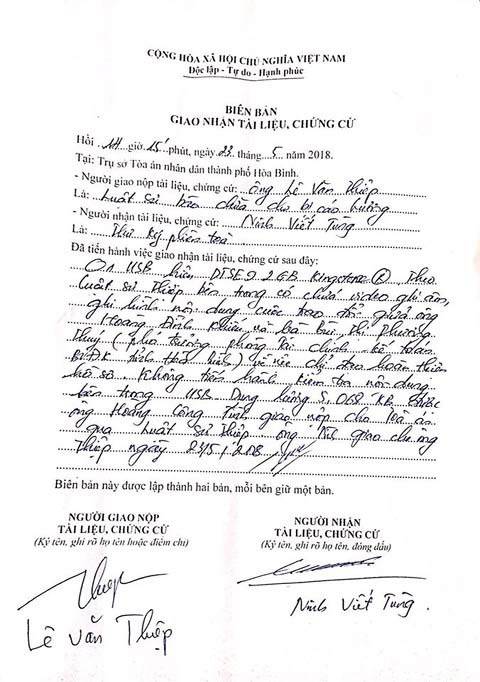 CỘNG HÒA XÃ HỘI CHỦ NGHĨA VIỆT NAM
Độc lập - Tự do - Hạnh phúc
BIÊN BẢN
GIAO NHẬN TÀI LIỆU, CHỨNG CỨ
Hồi 14 giờ 15 phút, ngày 23 tháng 5 năm 2018.
Tại: Trụ sở Tòa án nhân dân thành phố Hòa Bình.
- Người giao nộp tài liệu, chứng cứ: Ông Lê Văn Thiệp
Là: Luật sư bào chữa cho bị cáo Lương
- Người nhận tài liệu, chứng cứ: Ninh Viết Tùng
Là: Thư ký phiên toà
Đã tiến hành việc giao nhận tài liệu, chứng cứ sau đây:
01 USB hiệu DTSE9 2GB Kingston ® Theo
luật sư Thiệp bên trong có chứa video ghi âm,
ghi hình nội dung cuộc trao đổi giữa ông
Hoàng Đình Khiếu và bà Bùi Thị Phương
Thuý (phó trưởng phòng tài chính kế toán
BVĐK tỉnh Hoà Bình) về việc chỉ đạo hoàn thiện
hồ sơ. Không tiến hành kiểm tra nội dung
bên trong USB. Dung lượng 5.068 KB. được
ông Hoàng Công Tình giao nộp cho Toà án
qua luật sư Thiệp ông Tình giao cho ông
Thiệp ngày 23/5/2018
Biên bản này được lập thành hai bản, mỗi bên giữ một bản.
NGƯỜI GIAO NỘP
TÀI LIỆU, CHỨNG CỨ
(Ký tên, ghi rõ họ tên hoặc điểm chỉ)
NGƯỜI NHẬN
TÀI LIỆU, CHỨNG CỨ
(Ký tên, ghi rõ họ tên, đóng dấu)
Thiệp
Lê Văn Thiệp
Ninh Viết Tùng.